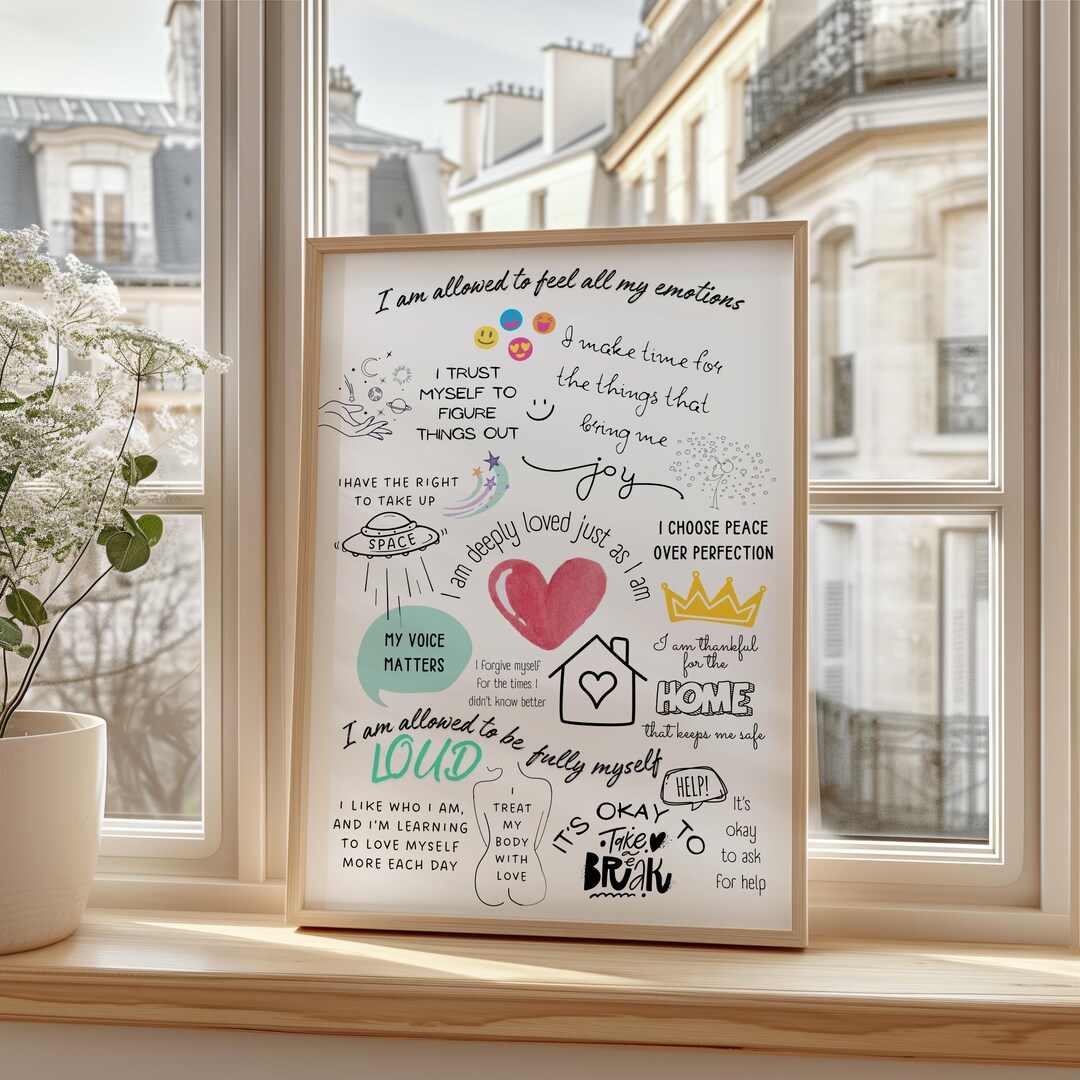 I am allowed to feel all my emotions
I make time for
the things that
bring me
joy
I TRUST
MYSELF TO
FIGURE
THINGS OUT
I HAVE THE RIGHT
TO TAKE UP
SPACE
I am deeply loved just as I am
I CHOOSE PEACE
OVER PERFECTION
MY VOICE
MATTERS
I forgive myself
for the times I
didn't know better
I am thankful
for the
HOME
that keeps me safe
I am allowed to be fully myself
LOUD
I LIKE WHO I AM,
AND I'M LEARNING
TO LOVE MYSELF
MORE EACH DAY
I
TREAT
MY
BODY
WITH
LOVE
IT'S OKAY TO
Take
a
BReaK
HELP!
It's
okay
to ask
for help